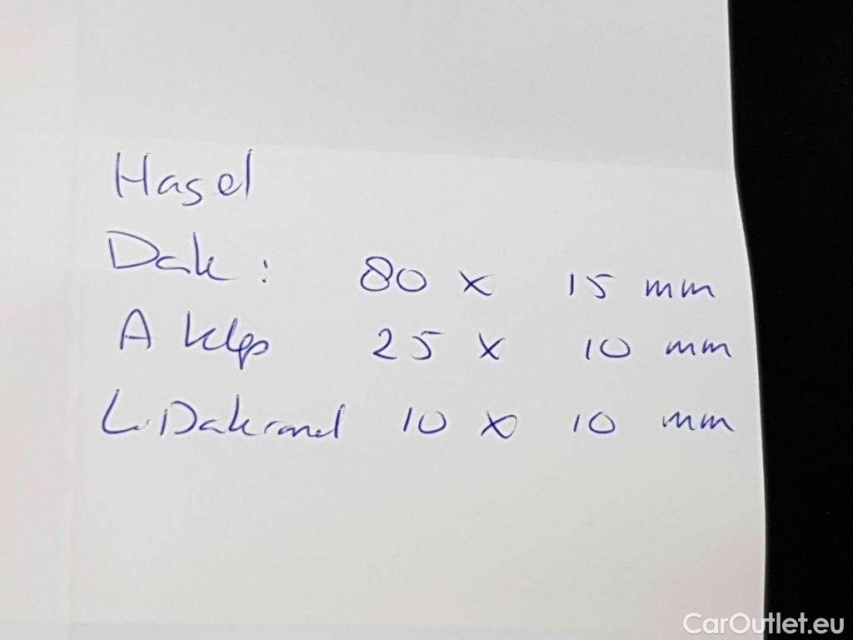 Hagel
Dak : 80 x 15 mm
A klep 25 x 10 mm
L. Dakrand 10 x 10 mm
CarOutlet.eu